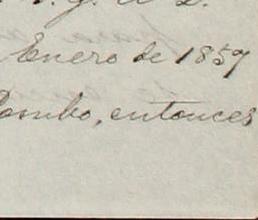 Enero de 1857
Pombo, entonces